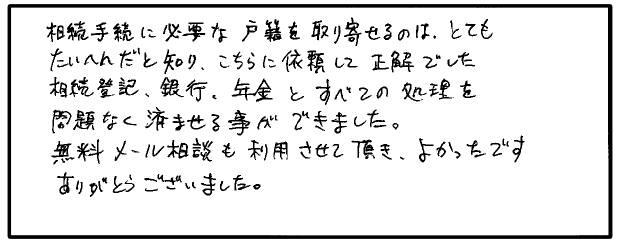 相続手続に必要な戸籍を取り寄せるのは、とても
たいへんだと知り、こちらに依頼して正解でした
相続登記、銀行、年金とすべての処理を
問題なく済ませる事ができました。
無料メール相談も利用させて頂き、よかったです
ありがとうございました。